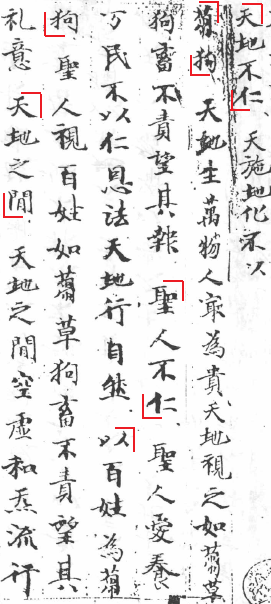 天地不仁 天施地化不以
蒭狗 天地生萬物人㝡為貴天地視之如蒭草
狗畜不責望其報 聖人不仁 聖人愛養
万民不以仁恩法天地行自然 以百姓為蒭
狗 聖人視百姓如蒭草狗畜不責望其
礼意 天地之間 天地之間空虛和炁流行